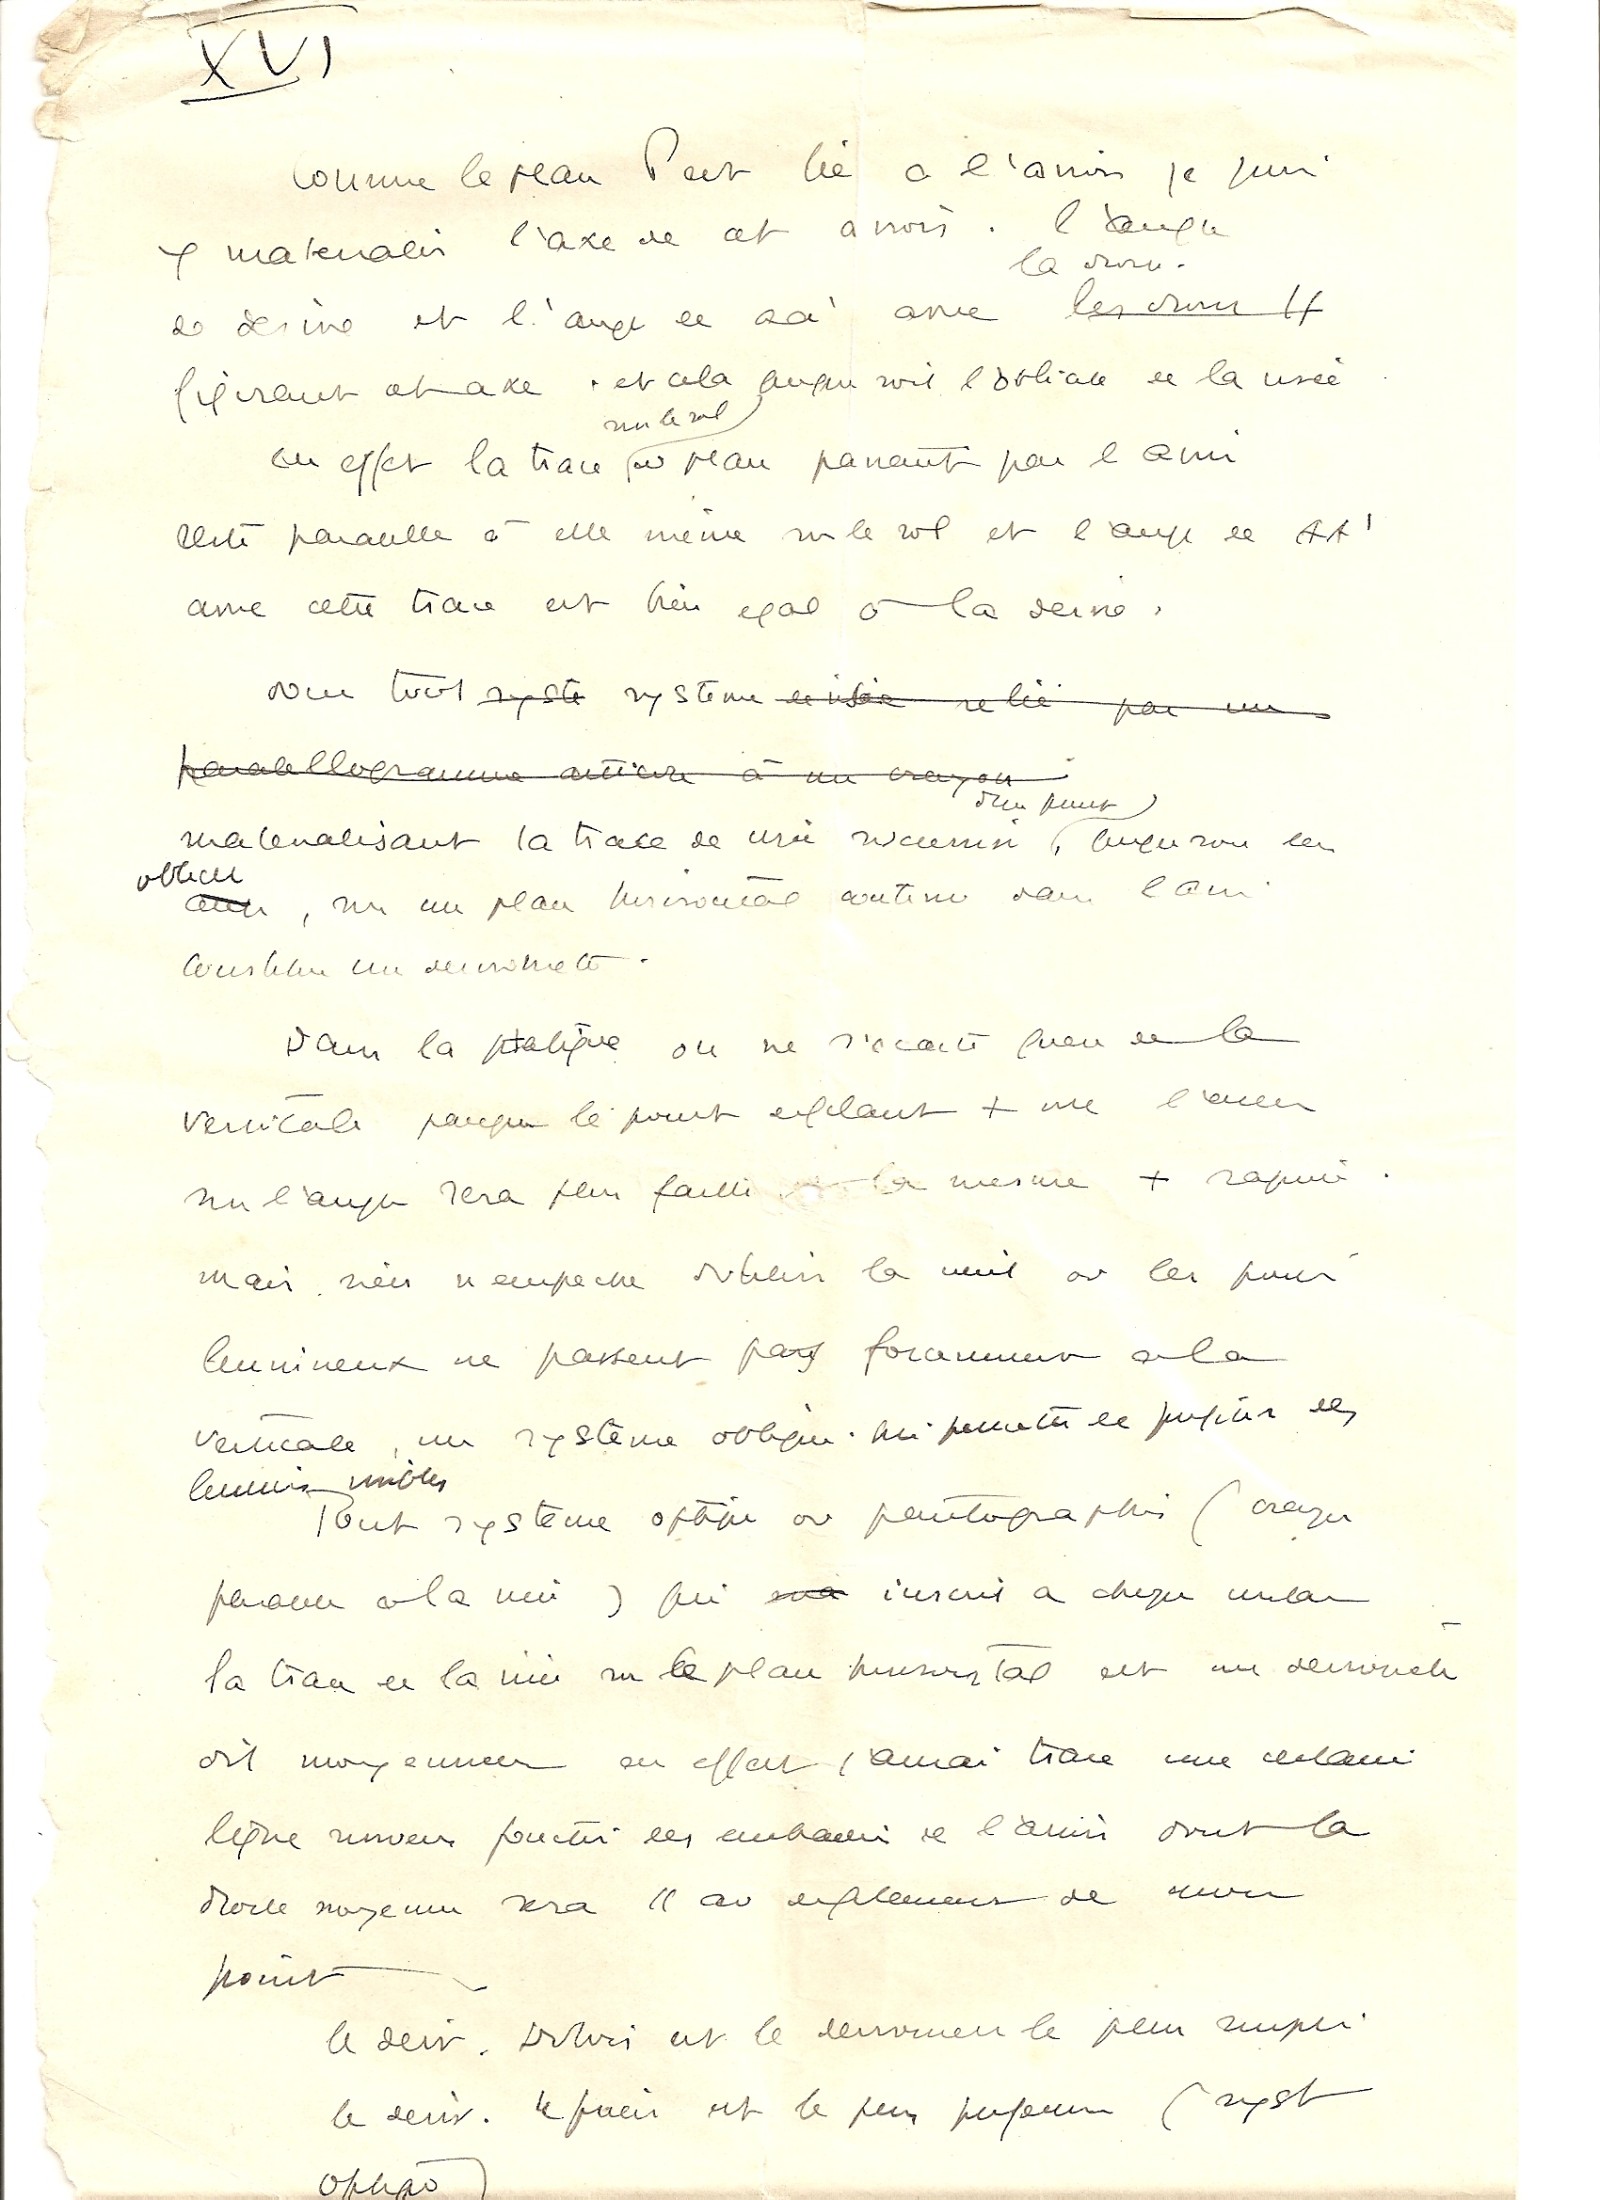 XVI
Comme le plan P est lié a l'avion je puis
y materialiser l'axe de cet avion. l'angle
la droite
de derive est l'angle de aa' avec les droites //
figurant cet axe. et cela quelque soit l'obliquité de la visée
sur le sol
en effet la trace du plan passant par l'avion
reste parallele à elle même sur le sol et l'angle de AA'
avec cette trace est bien egal à la derive.
donc tout syste système de visée relié par un
parallellogramme articulé à un crayon
d'un point
materialisant la trace de visées successives, quelque soit les
obliques
, sur un plan horizontal contenu dans l'avion
constitue un derivometre.
Dans la pratique on ne s'ecarte guere de la
verticale parceque le point defilant + vite l'acces
sur l'angle sera plus facile la mesure + rapide.
mais rien n'empeche d'obtenir la nuit ou les points
lumineux ne passent pas forcement a la
verticale, un système oblique qui permette de profiter des
lumieres visibles
Tout système optique ou pantographe (crayon
parallele a la visée) qui inscrit a chaque instant
la trace de la visée sur le plan horizontal est un derivometre
dit moyenneur en effet j'aurai tracé une certaine
ligne sinueuse fonction des embardées de l'avion dont la
droite moyenne sera // au defilement de mon
point
le deriv. est le derivometre le plus simple
le deriv. est le plus (syst
optique)